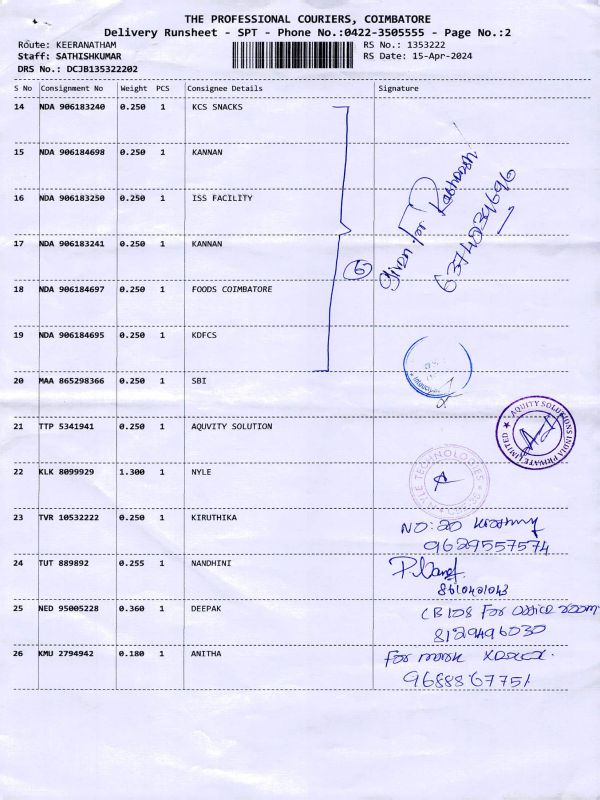 THE PROFESSIONAL COURIERS, COIMBATORE
Delivery Runsheet - SPT - Phone No.:0422-3505555 - Page No.:2
Route: KEERANATHAM RS No.: 1353222
Staff: SATHISHKUMAR RS Date: 15-Apr-2024
DRS No.: DCJB135322202
S No Consignment No Weight PCS Consignee Details Signature
14 NDA 906183240 0.250 1 KCS SNACKS
15 NDA 906184698 0.250 1 KANNAN
16 NDA 906183250 0.250 1 ISS FACILITY
17 NDA 906183241 0.250 1 KANNAN
18 NDA 906184697 0.250 1 FOODS COIMBATORE
19 NDA 906184695 0.250 1 KDFCS
6
Given for
20 MAA 865298366 0.250 1 SBI
21 TTP 5341941 0.250 1 AQUVITY SOLUTION
AQUITY SOLUTIONS INDIA PRIVATE LIMITED
22 KLK 8099929 1.300 1 NYLE
NYLE TECHNOLOGIES
23 TVR 10532222 0.250 1 KIRUTHIKA
NO: 20
9629557574
24 TUT 889892 0.255 1 NANDHINI
8610401043
25 NED 95005228 0.360 1 DEEPAK
LB108 For office room
8129496030
26 KMU 2794942 0.180 1 ANITHA
For
9688867751